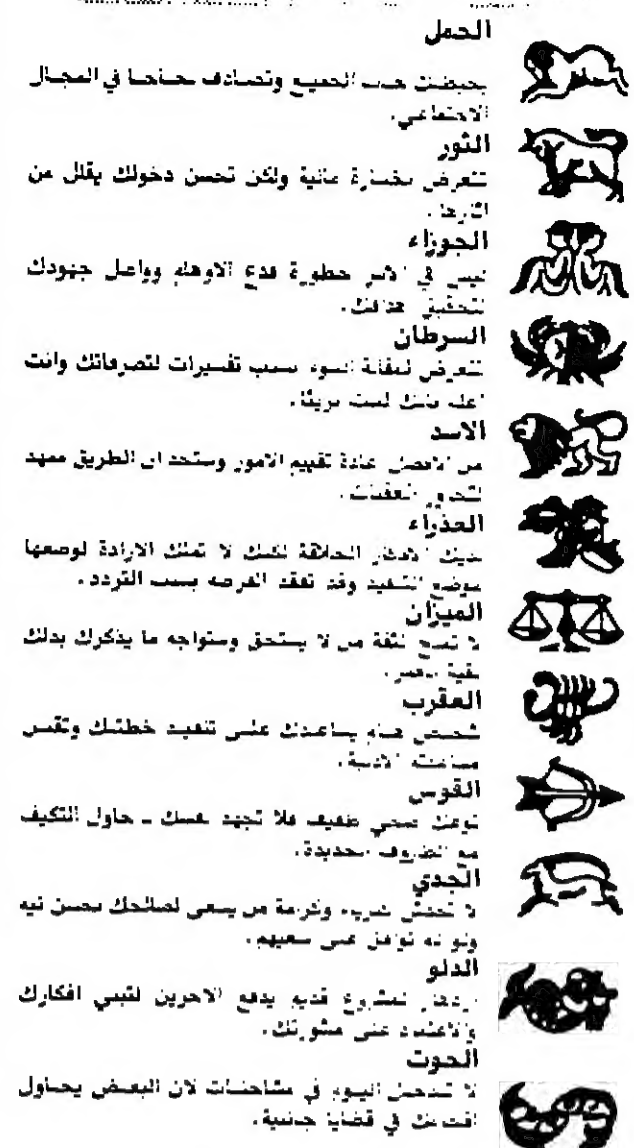 الحمل
يحيطك حب الجميع وتصادف نجاحا في المجال
الاجتماعي.
الثور
تتعرض لخسارة مالية ولكن تحسن دخولك يقلل من
اثارها.
الجوزاء
ليس في الامر خطورة فدع الاوهام وواصل جهودك
لتحقيق هدفك.
السرطان
تتعرض لمقالة السوء بسبب تفسيرات لتصرفاتك وانت
اعلم بانك لست بريئا.
الاسد
من الافضل اعادة تقييم الامور وستجد ان الطريق ممهد
لتجاوز العقبات.
العذراء
لديك الافكار الخلاقة لكنك لا تملك الارادة لوضعها
موضع التنفيذ وقد تفقد الفرصة بسبب التردد.
الميزان
لا تمنح الثقة من لا يستحق وستواجه ما يذكرك بذلك
بقية العمر.
العقرب
شخص هام يساعدك على تنفيذ خطتك وتقبل
مساعدته الادبية.
القوس
توعك صحي طفيف فلا تجهد نفسك ــ حاول التكيف
مع الظروف الجديدة.
الجدي
لا تخدش كبرياء وكرامة من يسعى لصالحك بحسن نيه
ولو انه توافق على سعيهم.
الدلو
ازدهار لمشروع قديم يدفع الاخرين لتبني افكارك
والاعتماد على مشورتك.
الحوت
لا تدخل اليوم في مشاحنات لان البعض يحاول
اقحامك في قضايا جانبية.